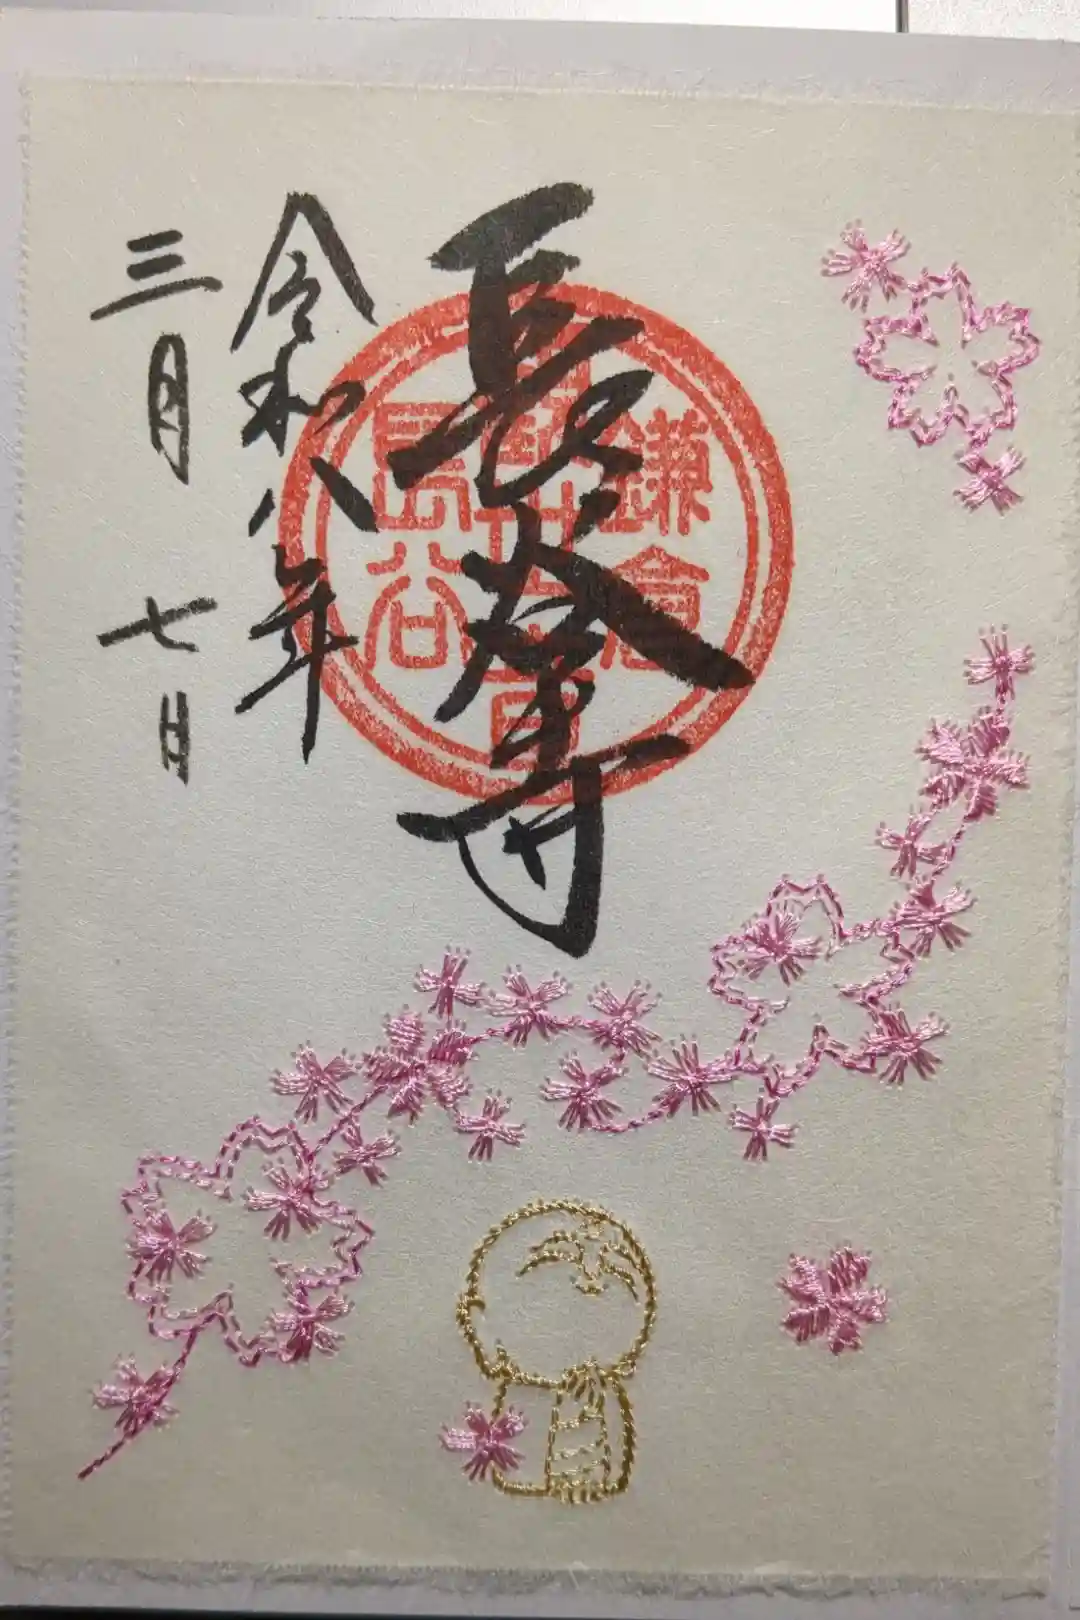 長谷寺
鎌倉
長谷
令和八年
三月七日